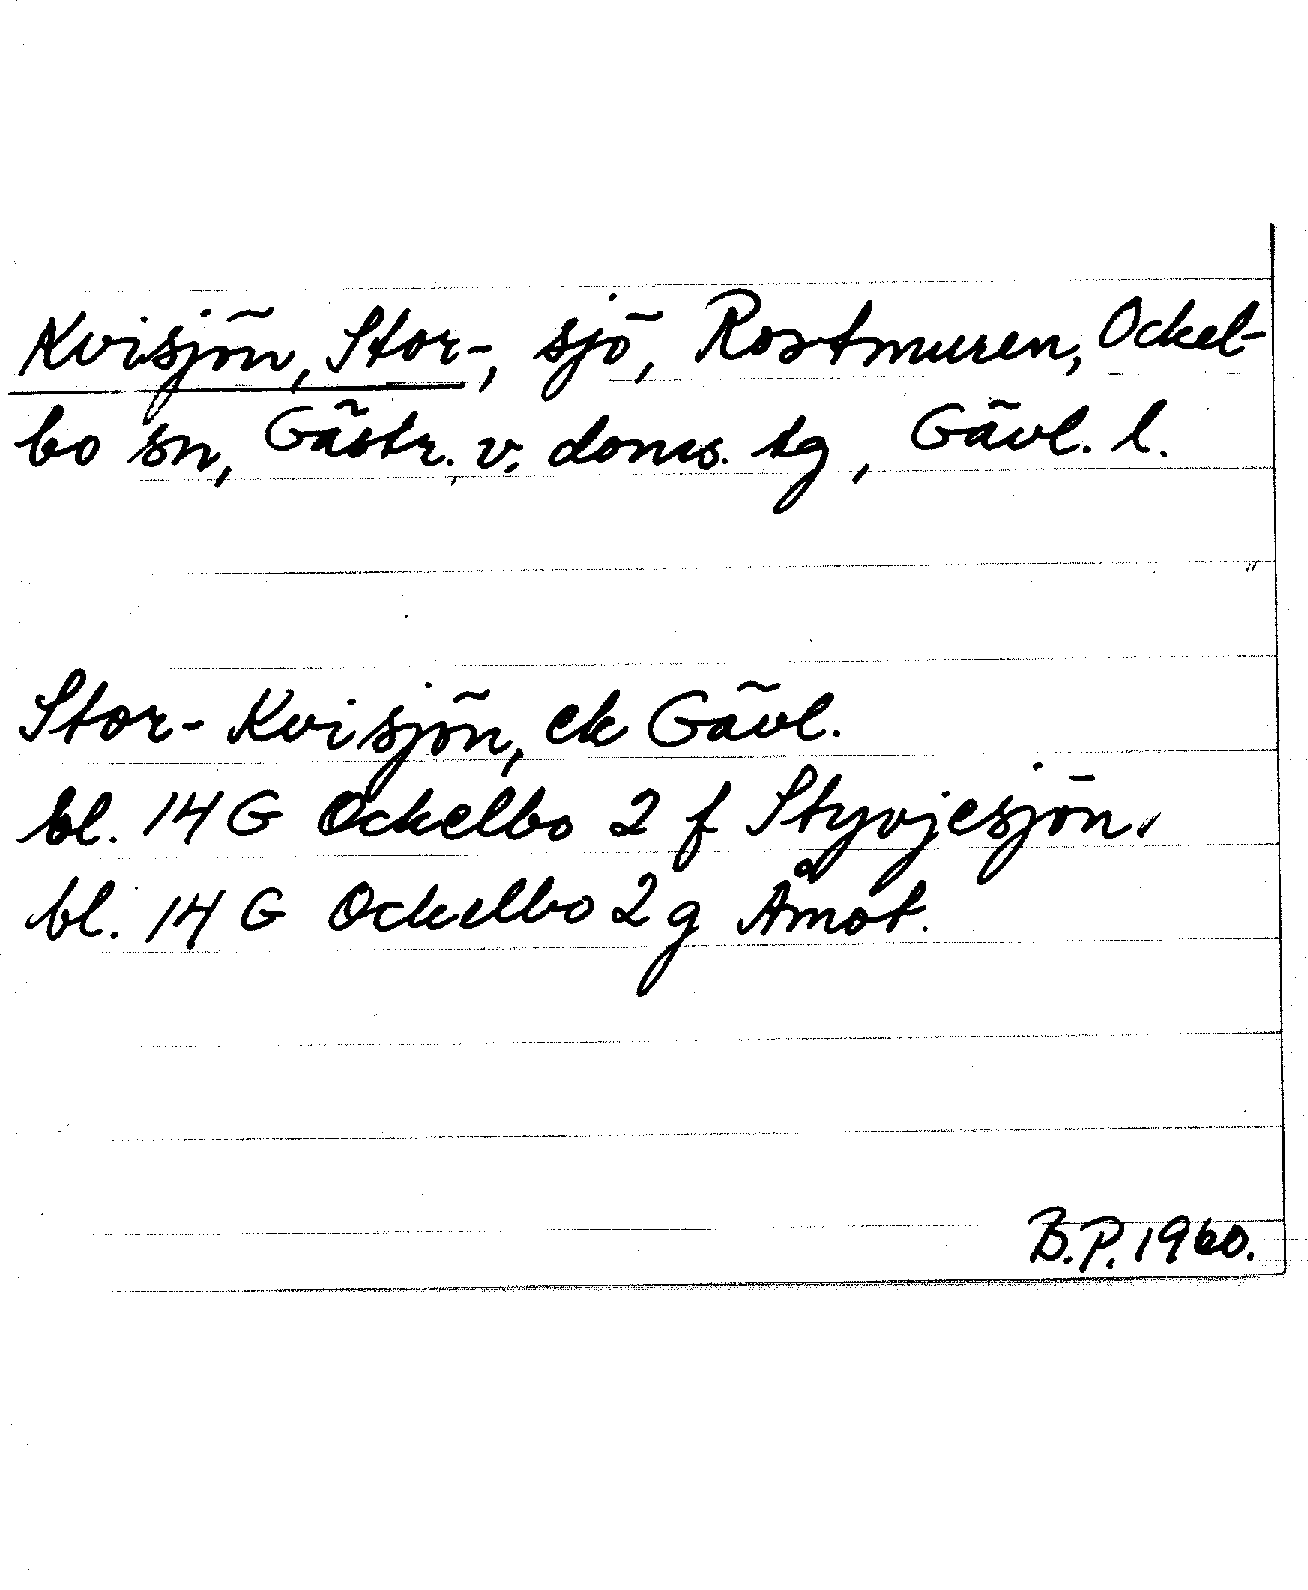 Kvisjön, Stor-, sjö, Rostmuren, Ockel-
bo sn, Gästr. v. doms. tg, Gävl. l.
Stor-Kvisjön, ek Gävl.
bl. 14 G Ockelbo 2 f Styvjesjön.
bl. 14 G Ockelbo 2 g Åmot.
B.P. 1960.